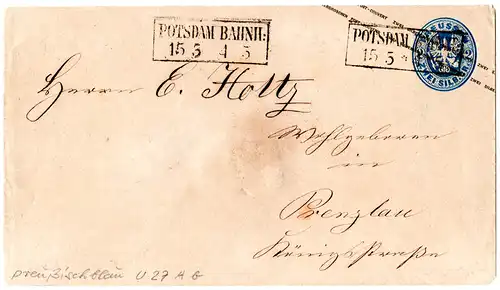 POTSDAM BAHNH:
15 5 4 5
POTSDAM
15 5 *
Herrn E. Holtz
Wohlgeboren
in
Prenzlau
Königsstraße
preußischblau U 27 A G